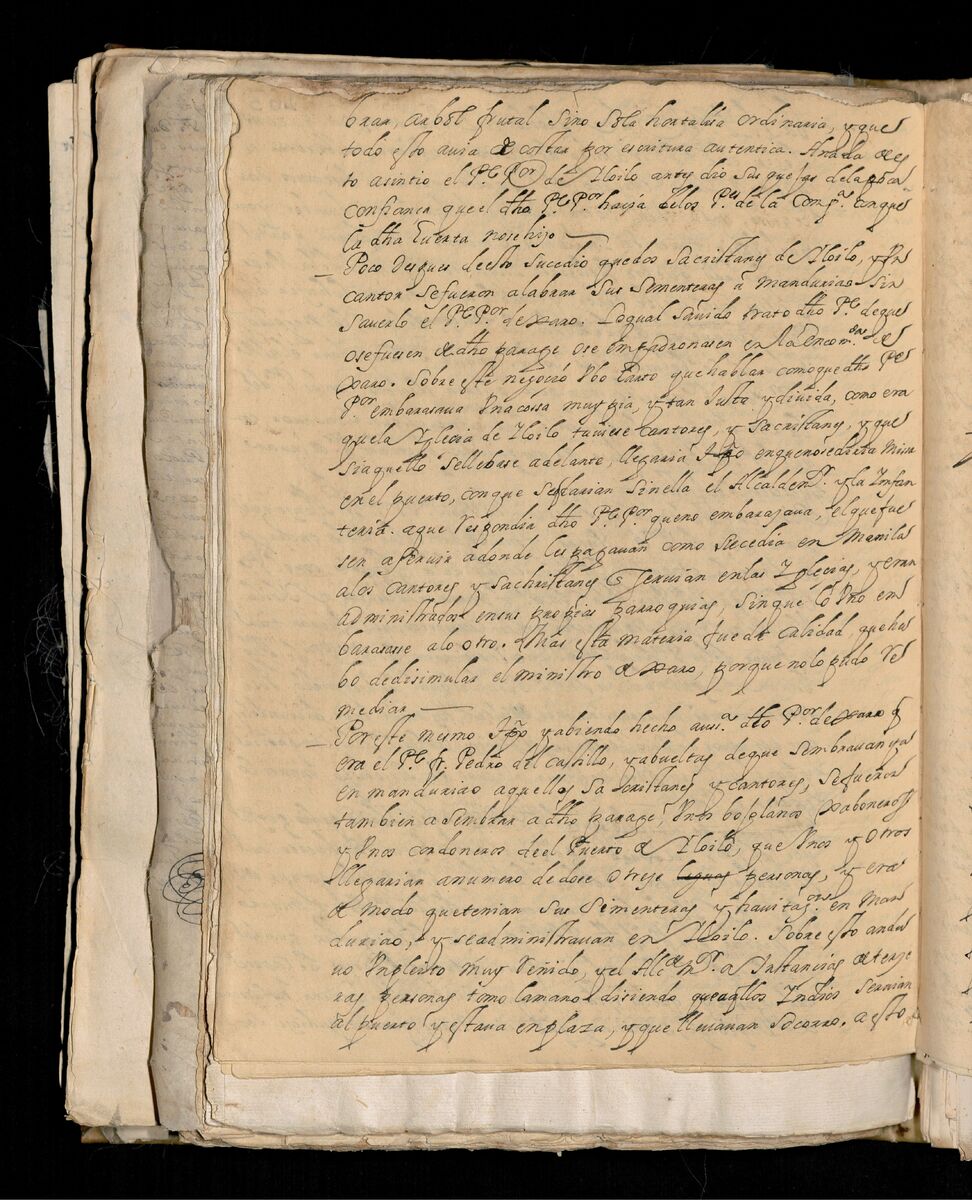 brar, arbol frutal sino sola hortalisa ordinaria, y que
todo esto avia de costar por escritura autentica. A nada de es
to asintio el Pe Por de Yloilo antes dio sus quejas de la poca
confiança que el dho Pe Por hasia delos Pes de la Compa. conque
la dha Cuerta nose hijo —
Poco despues de esto sucedio que dos sacristanes de Yloilo, y Un
cantor se fueron alabrar sus sementeras a Manduriao sin
saverlo el Pe Por de xaro. Loqual savido trato dho Pe de que
o se fuesen de dho parage o se empadronasen en la encomda de
xaro. Sobre este negocio Vbo harto que hablar como que dho Pe
Por embarasava Una cossa muy pia, y tan Justa y divida, como era
que la Yglecia de Yloilo tuviese cantores, y sacristanes, y que
si aquello se llebase adelante, llegaria tpo en que no se diria missa
en el puerto, conque se estarian sin ella el Alcalde mr. y la Infan
teria. a que Respondia dho Pe Por que no embarajava, el que fue
sen a servir a donde les pagavan como sucedia en Manila
alos cantores y sachristanes q servian en las Yglecias, y eran
administrados en sus propias parroquias, sin que lo Uno em
barasase alo otro. Mas esta materia fue de calidad, que hu
bo de disimular el ministro de xaro, porque no lo pudo Re
mediar —
Por este mesmo tpo y abiendo hecho ausa. dho Por de xaro q
era el Pe fr. Pedro del Castillo, y abueltas de que sembravan ya
en manduriao aquellos sacristanes y cantores, se fueron
tambien a sembrar a dho parage, Unos bojolanos xaboneros
y Unos cordoneros de el Puerto de Yloilo, que Unos y otros
llegarian a numero de dose o treje personas, y era
de modo que tenian sus sementeras y havitasones en Man
duriao, y se administravan en Yloilo. Sobre esto andu
vo Un pleito muy Reñido, y el Alcde mr. a Instancias de terse
ras personas tomo la mano disiendo que aqllos Yndios servian
al puerto y estava en plaza, y que llevavan socorro. a esto